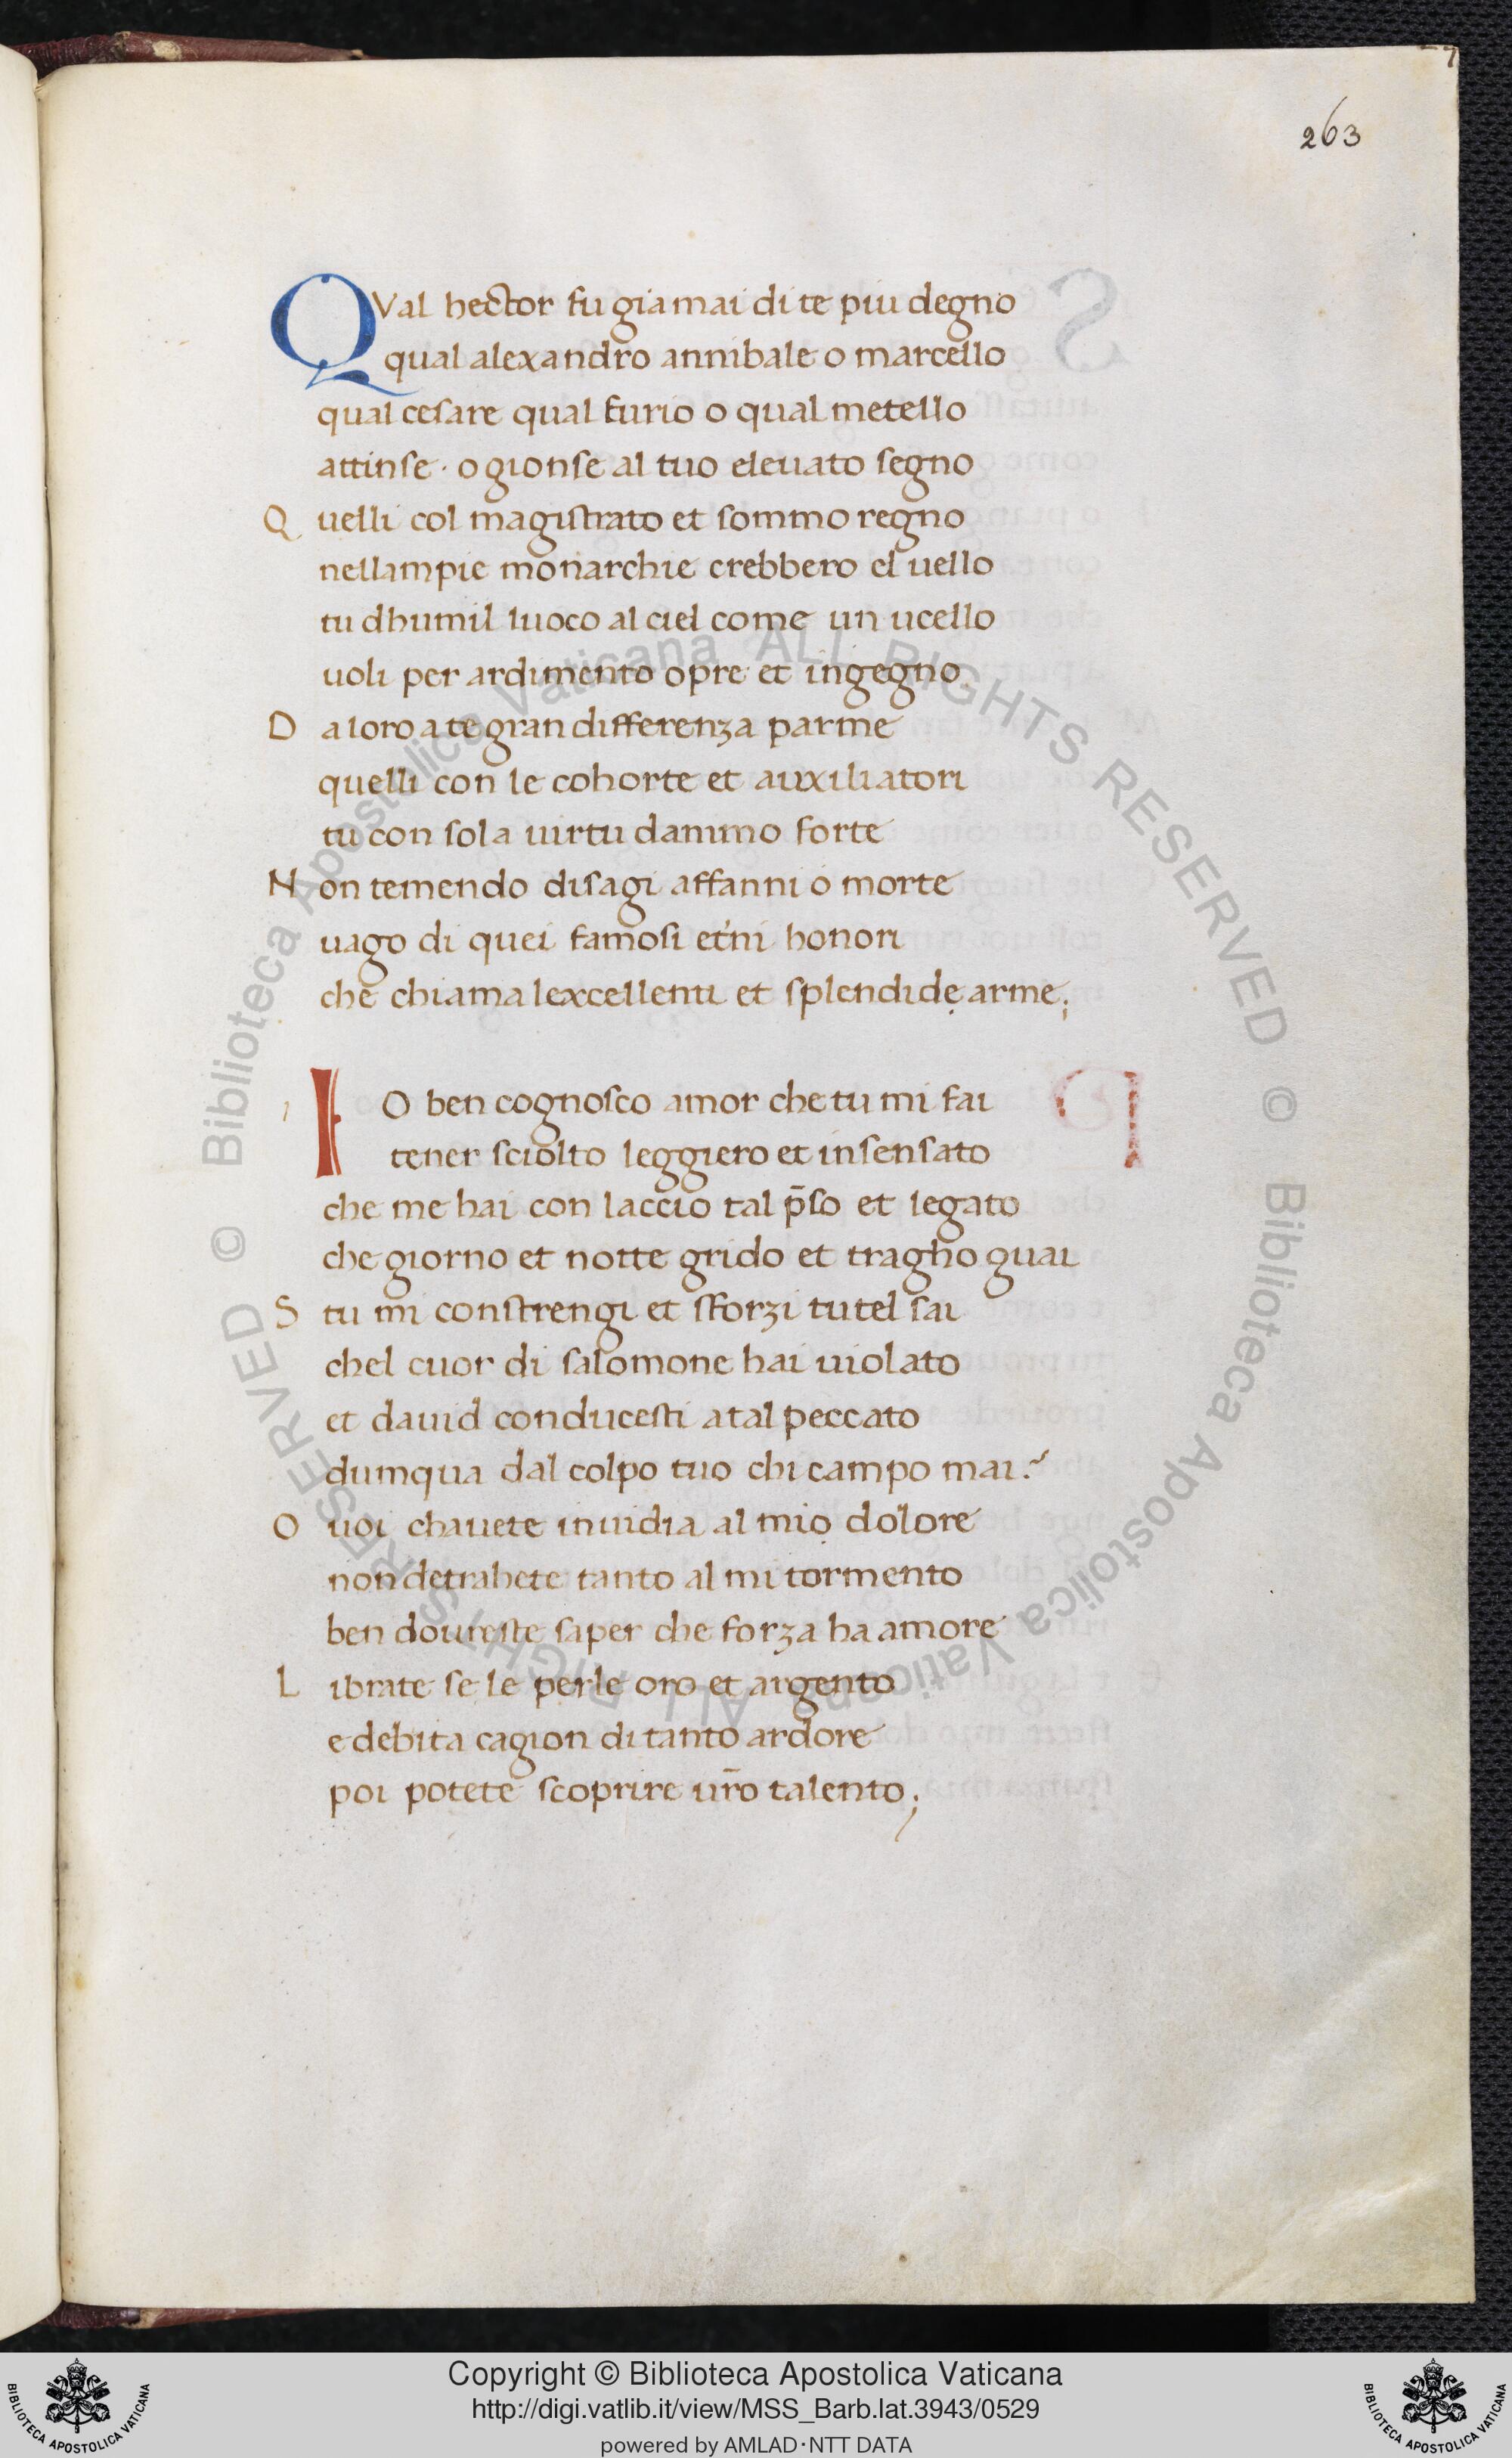 263
QVal hector fu gia mai di te piu degno
qual alexandro annibale o marcello
qual cesare qual furio o qual metello
attinse · o gionse al tuo eleuato segno
Quelli col magistrato et sommo regno
nellampie monarchie crebbero el uello
tu dhumil luoco al ciel come un ucello
uoli per ardimento opre et ingegno
Da loro a te gran differenza parme
quelli con le cohorte et auxiliatori
tu con sola uirtu danimo forte
Non temendo disagi affanni o morte
uago di quei famosi et'ni honori
che chiama lexcellenti et splendide arme;
IO ben cognosco amor che tu mi fai
tener sciolto leggiero et insensato
che me hai con laccio tal p̄so et legato
che giorno et notte grido et tragho guai
S tu mi constrengi et sforzi tutel sai
chel cuor di salomone hai uiolato
et dauid conducesti a tal peccato
dumqua dal colpo tuo chi campo mai?
O uoi chauete inuidia al mio dolore
non detrahete tanto al mi tormento
ben doureste saper che forza ha amore
Librate se le perle oro et argento
e debita cagion di tanto ardore
poi potete scoprire ur̄o talento;
© Biblioteca Apostolica Vaticana ALL RIGHTS RESERVED
© Biblioteca Apostolica Vaticana ALL RIGHTS RESERVED
Copyright © Biblioteca Apostolica Vaticana
http://digi.vatlib.it/view/MSS_Barb.lat.3943/0529
powered by AMLAD·NTT DATA
BIBLIOTECA APOSTOLICA VATICANA
BIBLIOTECA APOSTOLICA VATICANA